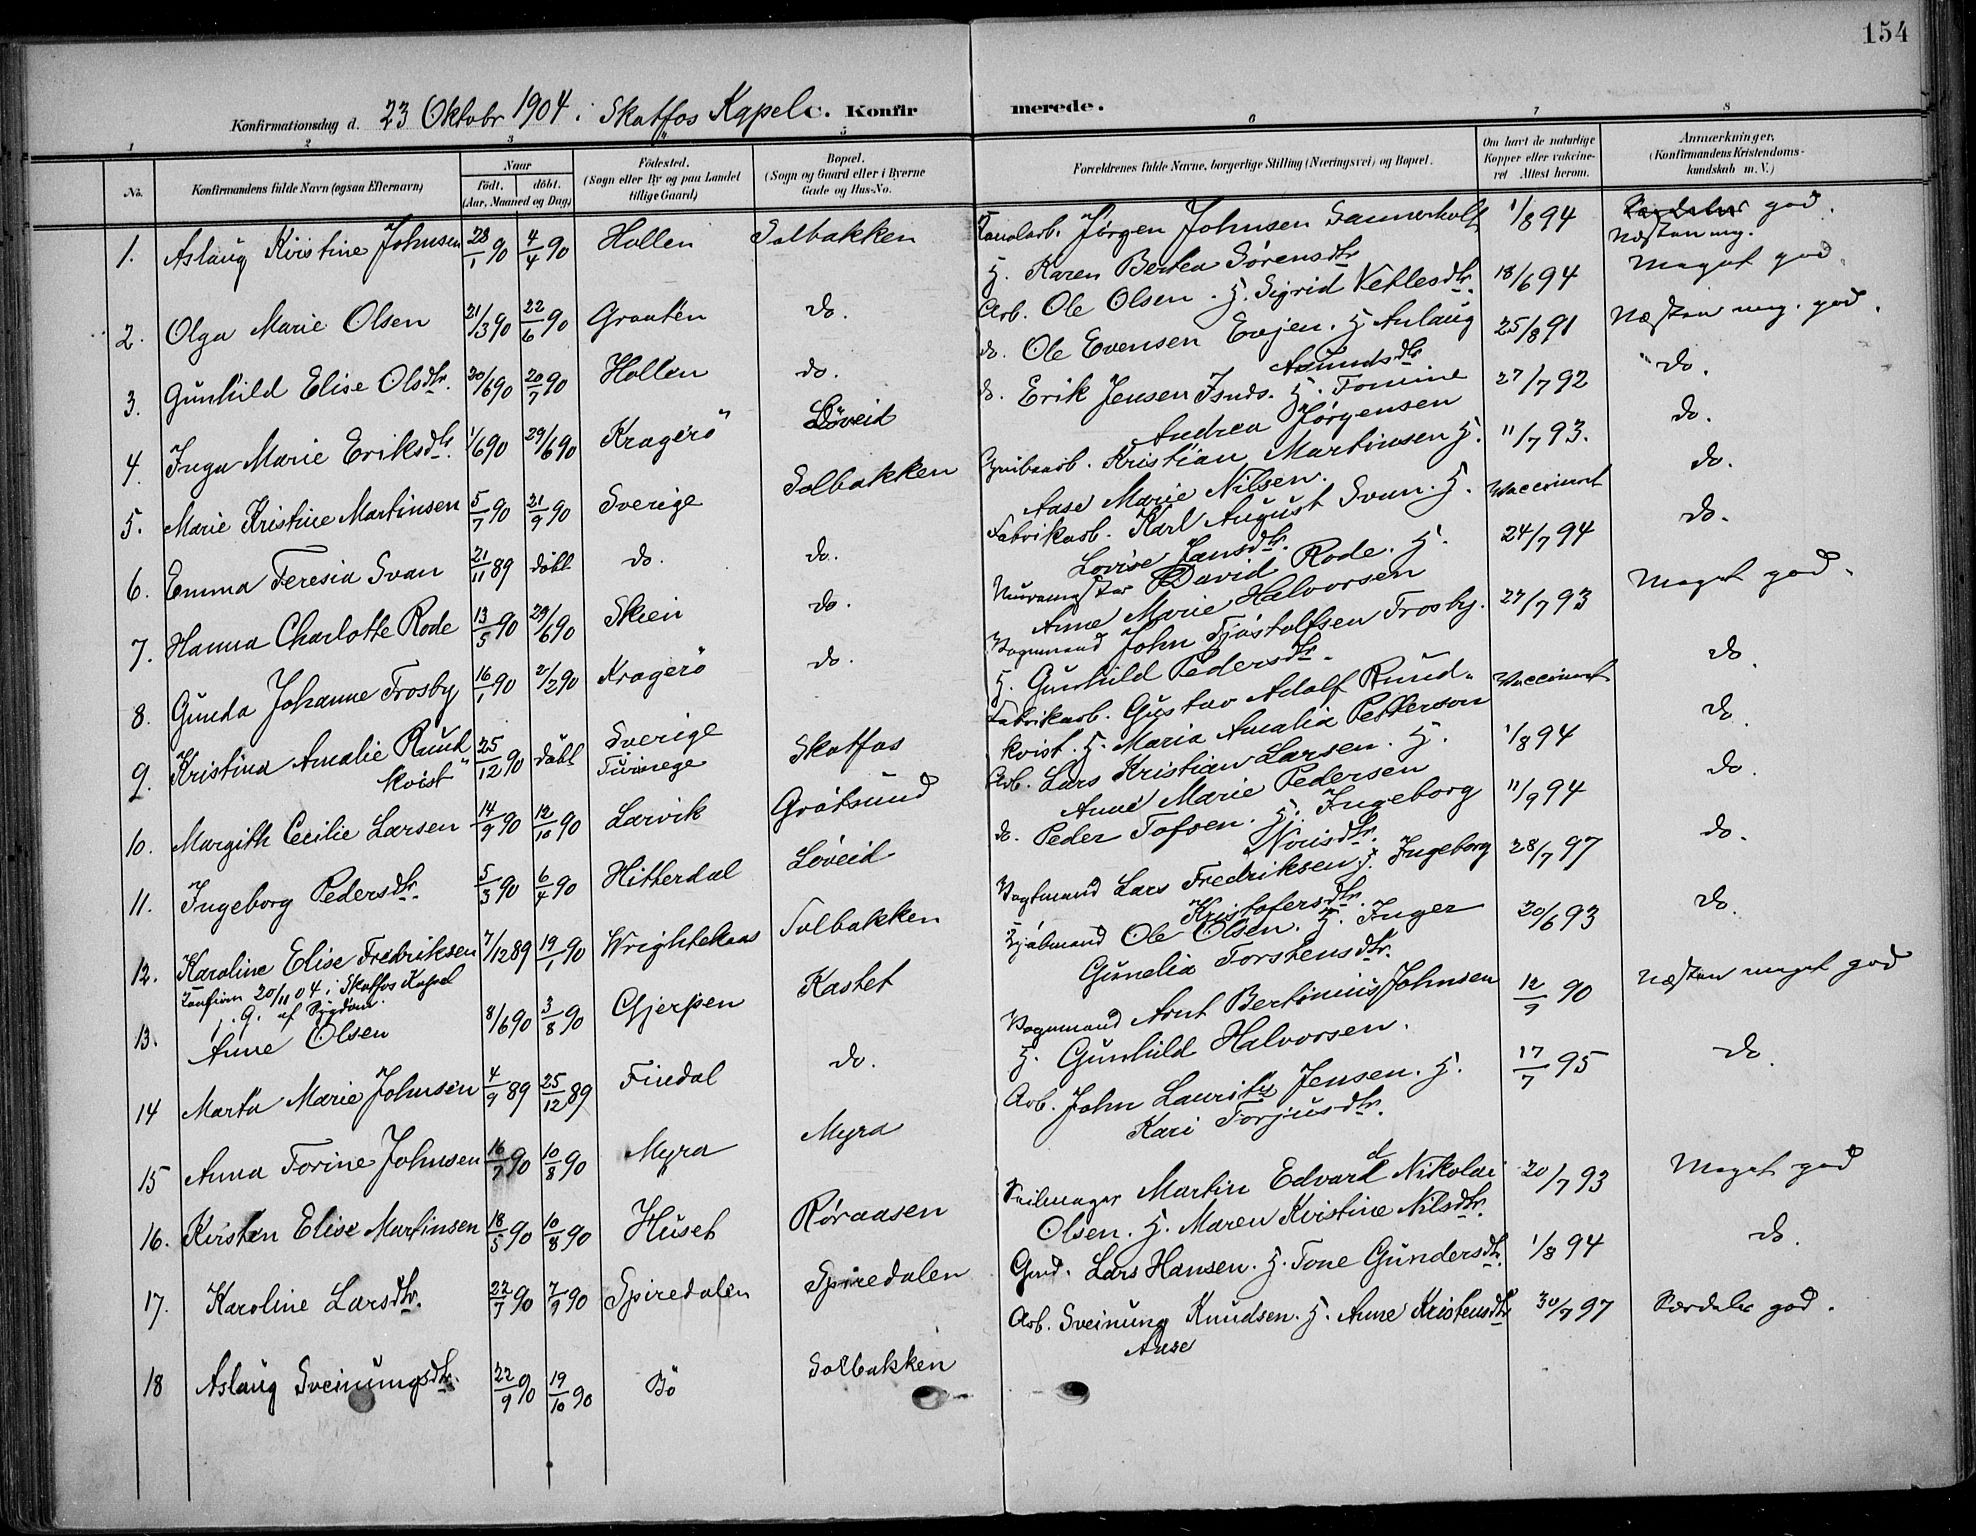 154
Konfirmationsdag d. 23 Oktobr 1904 i Skotfos Kapel c. Konfirmerede.
1 2 3 4 5 6 7 8
No. Konfirmandens fulde Navn (ogsaa Efternavn) Naar födt. döbt. (Aar, Maaned og Dag) Födested. (Sogn eller By og paa Landet tillige Gaard) Bopæl. (Sogn og Gaard eller i Byerne Gade og Hus-No. Forældrenes fulde Navne, borgerlige Stilling (Næringsvei) og Bopæl. Om havt de naturlige Kopper eller vakcineret Attest herom. Anmærkninger. (Konfirmandens Kristendomskundskab m. V.)
1. Aslaug Kristine Johnsen 28/1 90 4/4 90 Hollen Solbakken Kanalarb. Jørgen Johnsen Sannerholt 1/8 94 god.
H. Karen Bertea Sørensdtr. Næsten mg.
2. Olga Marie Olsen 21/3 90 22/6 90 Graaten do. Arb. Ole Olsen. H. Sigrid Vetlesdtr. 18/6 94 Meget god.
3. Gunhild Elise Olsdtr. 30/6 90 20/7 90 Hollen do. do. Ole Evensen Evjen. H. Anlaug 25/8 91 Næsten mg. god.
Asmundsdtr
4. Inga Marie Eriksdtr. 1/6 90 29/6 90 Kragerö Løveid do. Erik Jensen Isnds. H. Tomine 27/7 92 do.
Andrea Jörgensen
5. Marie Kristine Martinsen 5/7 90 21/9 90 Sverige Solbakken Kristian Martinsen H. 11/7 93. do.
Aase Marie Nilsen.
6. Emma Teresia Svan 21/11 89 döbt do. do. Fabrikarb. Karl August Svan. H. Vaccinert do.
Lovise Jansdtr.
7. Hanna Charlotte Rode 13/5 90 29/6 90 Skien do. Murmester David Rode. H. 24/7 94 do.
Anne Marie Halvorsen
8. Gunda Johanne Trosby 16/1 90 2/2 90 Kragerö do. Vognmand John Tjöstolfsen Trosby. 27/7 93 Meget god.
H. Gunhild Pedersdtr.
9. Kristina Amalie Rund 25/12 90 döbt Sverige Skotfos Fabrikarb. Gustav Adolf Rund- Vaccinert do.
kvist Tuinege kvist. H. Maria Amalia Petterson
10. Margith Cecilie Larsen 14/9 90 12/10 90 Larvik Grötsund Arb. Lars Kristian Larsen. H. 1/8 94 do.
Anne Marie Pedersen
11. Ingeborg Pedersdtr. 5/3 90 6/4 90 Hitterdal Løveid do. Peder Tofsen. H. Ingeborg 11/9 94 do.
Norisdtr.
12. Karoline Elise Fredriksen 7/12 89 19/1 90 Wrightekaas Solbakken Vagtmand Lars Fredriksen H. Ingeborg 28/7 97 do.
Konfirm 20/11 04 i Skotfos Kapel Kristofersdtr.
p. G. af Sygdom.
13. Anne Olsen 8/6 90 3/8 90 Gjerpen Kastet Ole Olsen. H. Inger 20/6 93 do.
Gunelia Torstensdtr.
14 Marta Marie Johnsen 4/9 89 25/12 89 Findal do. Vognmand Arnt Bertinius Johnsen 12/9 90 Næsten meget god
H. Gunhild Halvorsen.
15 Anna Torine Johnsen 16/7 90 10/8 90 Myra Myra Arb. John Lauritz Jensen. H. 17/7 95 do.
Kari Torjusdtr.
16. Kirsten Elise Martinsen 18/5 90 10/8 90 Huset Röraasen Seilmager Martin Edvard Nikolai 20/7 93 Meget god
Olsen. H. Maren Kristine Nilsdtr.
17. Karoline Larsdtr. 22/7 90 7/9 90 Spiredalen Spiredalen Gmd. Lars Hansen. H. Tone Gundersdtr. 1/8 94 do.
18 Aslaug Sveinungsdtr. 22/9 90 19/10 90 Bö Solbakken Arb. Sveinung Knudsen. H. Anne Kristensdtr 30/7 97 Særdeles god.
Aase